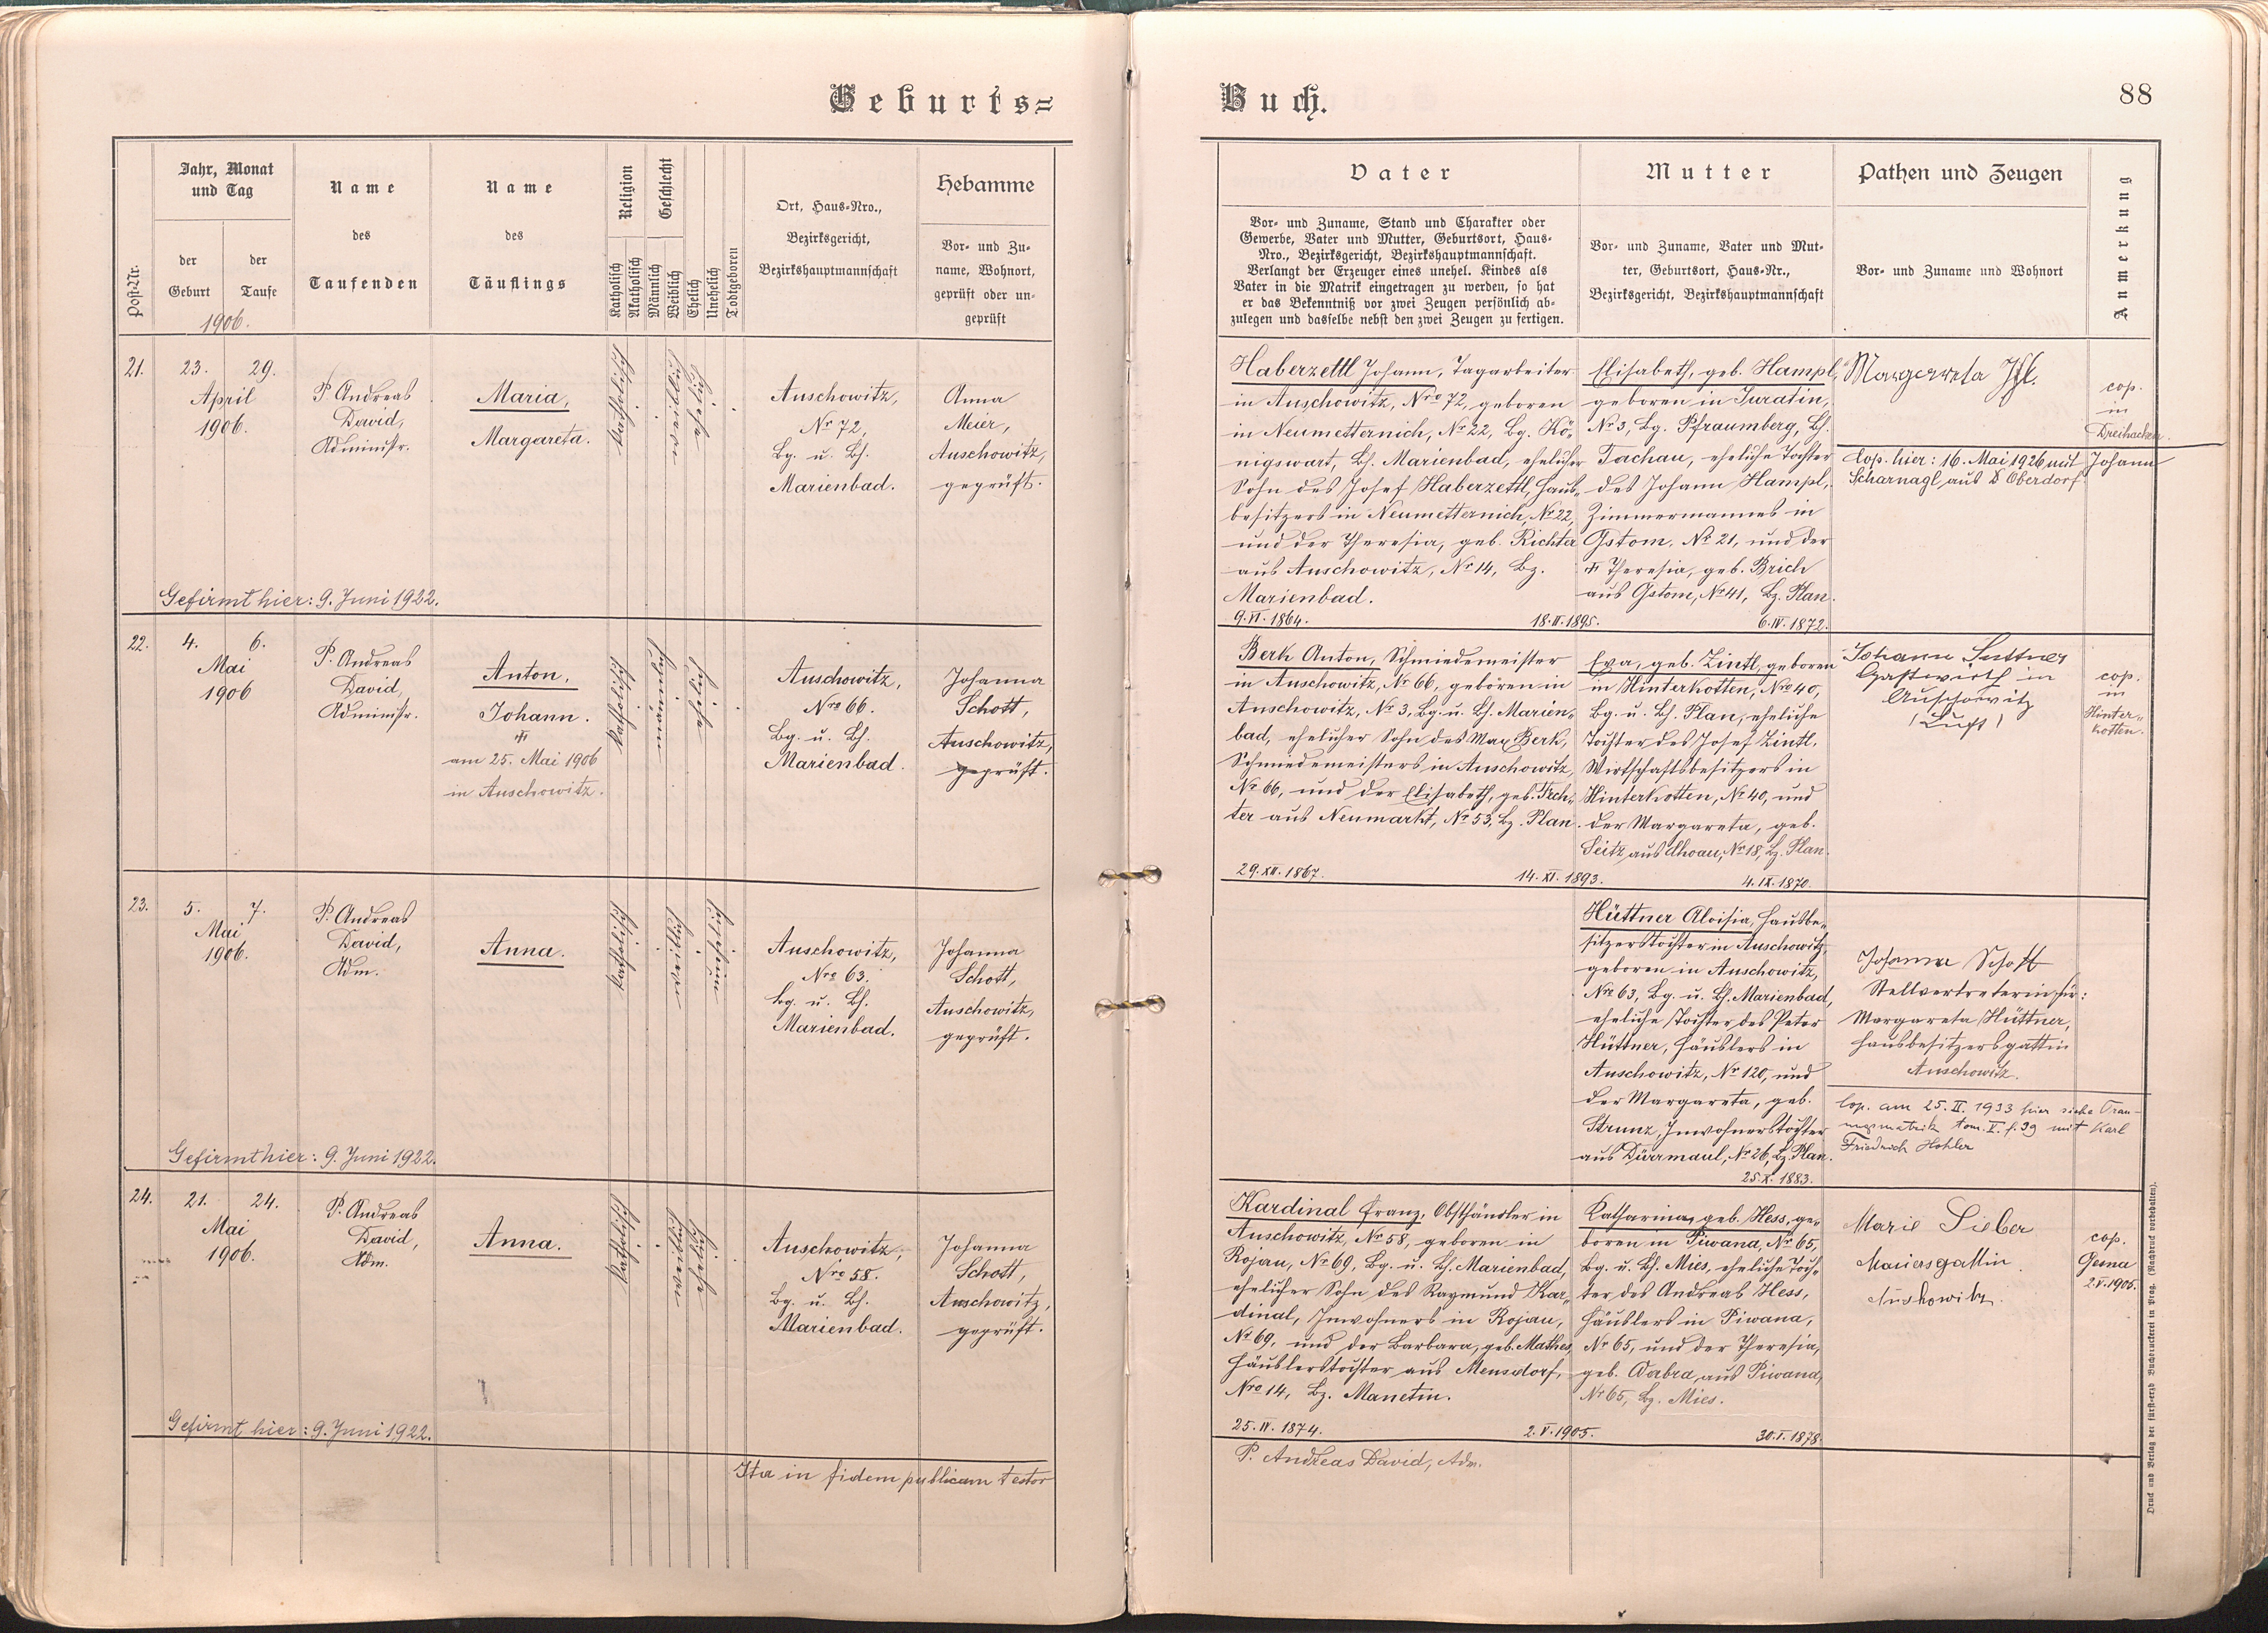 Geburts=
Jahr, Monat
und Tag
Post-Nr.
der
Geburt
der
Taufe
1906.
Name
des
Taufenden
Name
des
Täuflings
Religion
Katholisch
Akatholisch
Geschlecht
Männlich
Weiblich
Ehelich
Unehelich
Todtgeboren
Ort, Haus-Nro.,
Bezirksgericht,
Bezirkshauptmannschaft
Hebamme
Vor- und Zu-
name, Wohnort,
geprüft oder un-
geprüft
21.
23.
29.
April
1906.
P. Andreas
David,
Administr.
Maria,
Margareta.
Katholisch
Auschowitz,
Nr 72,
Bg. u. Bh.
Marienbad.
Anna
Meier,
Auschowitz,
geprüft.
Gefirmt hier: 9. Juni 1922.
22.
4.
6.
Mai
1906
P. Andreas
David,
Administr.
Anton,
Johann.
am 25. Mai 1906
in Auschowitz.
Katholisch
Auschowitz,
Nro 66.
Bg. u. Bh.
Marienbad.
Johanna
Schott,
Auschowitz,
geprüft.
23.
5.
7.
Mai
1906.
P. Andreas
David,
Adm.
Anna.
Katholisch
Auschowitz,
Nro 63.
Bg. u. Bh.
Marienbad.
Johanna
Schott,
Auschowitz,
geprüft.
Gefirmt hier: 9. Juni 1922.
24.
21.
24.
Mai
1906.
P. Andreas
David,
Adm.
Anna.
Katholisch
Auschowitz,
Nro 58.
Bg. u. Bh.
Marienbad.
Johanna
Schott,
Auschowitz,
geprüft.
Gefirmt hier: 9. Juni 1922.
Ita in fidem publicam testor
Buch.
88
Vater
Vor- und Zuname, Stand und Charakter oder
Gewerbe, Vater und Mutter, Geburtsort, Haus-
Nro., Bezirksgericht, Bezirkshauptmannschaft.
Verlangt der Erzeuger eines unehel. Kindes als
Vater in die Matrik eingetragen zu werden, so hat
er das Bekenntniß vor zwei Zeugen persönlich ab-
zulegen und dasselbe nebst den zwei Zeugen zu fertigen.
Mutter
Vor- und Zuname, Vater und Mut-
ter, Geburtsort, Haus-Nr.,
Bezirksgericht, Bezirkshauptmannschaft
Pathen und Zeugen
Vor- und Zuname und Wohnort
Anmerkung
Haberzettl Johann, Tagarbeiter
in Auschowitz, Nro 72, geboren
in Neumetternich, Nr 22, Bg. Kö-
nigswart, Bh. Marienbad, ehelicher
Sohn des Josef Haberzettl, Haus-
besitzers in Neumetternich, Nr 22,
und der Theresia, geb. Richter
aus Auschowitz, Nr 14, Bz.
Marienbad.
9.VI.1864.
18.II.1895.
Elisabeth, geb. Hampl,
geboren in Turatin,
Nr 3, Bg. Pfraumberg, Bh.
Tachau, eheliche Tochter
des Johann Hampl,
Zimmermannes in
Gstom, Nr 21, und der
Theresia, geb. Brich
aus Gstom, Nr 41, Bz. Plan.
6.IV.1872.
Margareta Ifl.
cop.
in
Dreihacken.
Cop. hier: 16. Mai 1926 mit Johann
Scharnagl aus D Oberdorf
Berk Anton, Schmiedemeister
in Auschowitz, Nr 66, geboren in
Auschowitz, Nr 3, Bg. u. Bh. Marien-
bad, ehelicher Sohn des Max Berk,
Schmiedemeisters in Auschowitz,
Nr 66, und der Elisabeth, geb. Tech-
ter aus Neumarkt, Nr 53, Bz. Plan.
29.XII.1867.
14.XI.1893.
Eva, geb. Zintl, geboren
in Hinterkotten, Nro 40,
Bg. u. Bh. Plan, eheliche
Tochter des Josef Zintl,
Wirtschaftsbesitzers in
Hinterkotten, Nr 40, und
der Margareta, geb.
Seitz aus Ahoau, Nr 18, Bz. Plan.
4.IX.1870.
Johann Suttner
Gastwirth in
Auschowitz
cop.
in
Hinter-
kotten.
Hüttner Aloisia, Hausbe-
sitzerstochter in Auschowitz,
geboren in Auschowitz,
Nro 63, Bg. u. Bh. Marienbad,
eheliche Tochter des Peter
Hüttner, Häuslers in
Auschowitz, Nr 120, und
der Margareta, geb.
Strunz, Inwohnerstochter
aus Dürrmaul, Nr 26, Bz. Plan.
25.X.1883.
Johanna Schott
Stellvertreterin für:
Margareta Hüttner,
Hausbesitzersgattin
Auschowitz.
Cop. am 25. II. 1933 hier siehe Trau-
ungsmatrik tom. V. f. 39 mit Karl
Friedrich Hohler
Kardinal Franz, Obsthändler in
Auschowitz, Nr 58, geboren in
Rojau, Nr 69, Bg. u. Bh. Marienbad,
ehelicher Sohn des Raymund Kar-
dinal, Inwohners in Rojau,
Nr 69, und der Barbara, geb. Mathes,
Häuslerstochter aus Mensdorf,
Nro 14, Bz. Manetin.
25.IV.1874.
2.V.1905.
Katharina, geb. Hess, ge-
boren in Piwana, Nr 65,
Bg. u. Bh. Mies, eheliche Toch-
ter des Andreas Hess,
Häuslers in Piwana,
Nr 65, und der Theresia,
geb. Wabra, aus Piwana,
Nr 65, Bz. Mies.
30.I.1878.
Marie Sieber
Mauersgattin
Auschowitz.
cop.
2.V.1905.
P. Andreas David, Adm.
Druck und Verlag der fürst-erzb. Buchdruckerei in Prag. (Nachdruck vorbehalten).